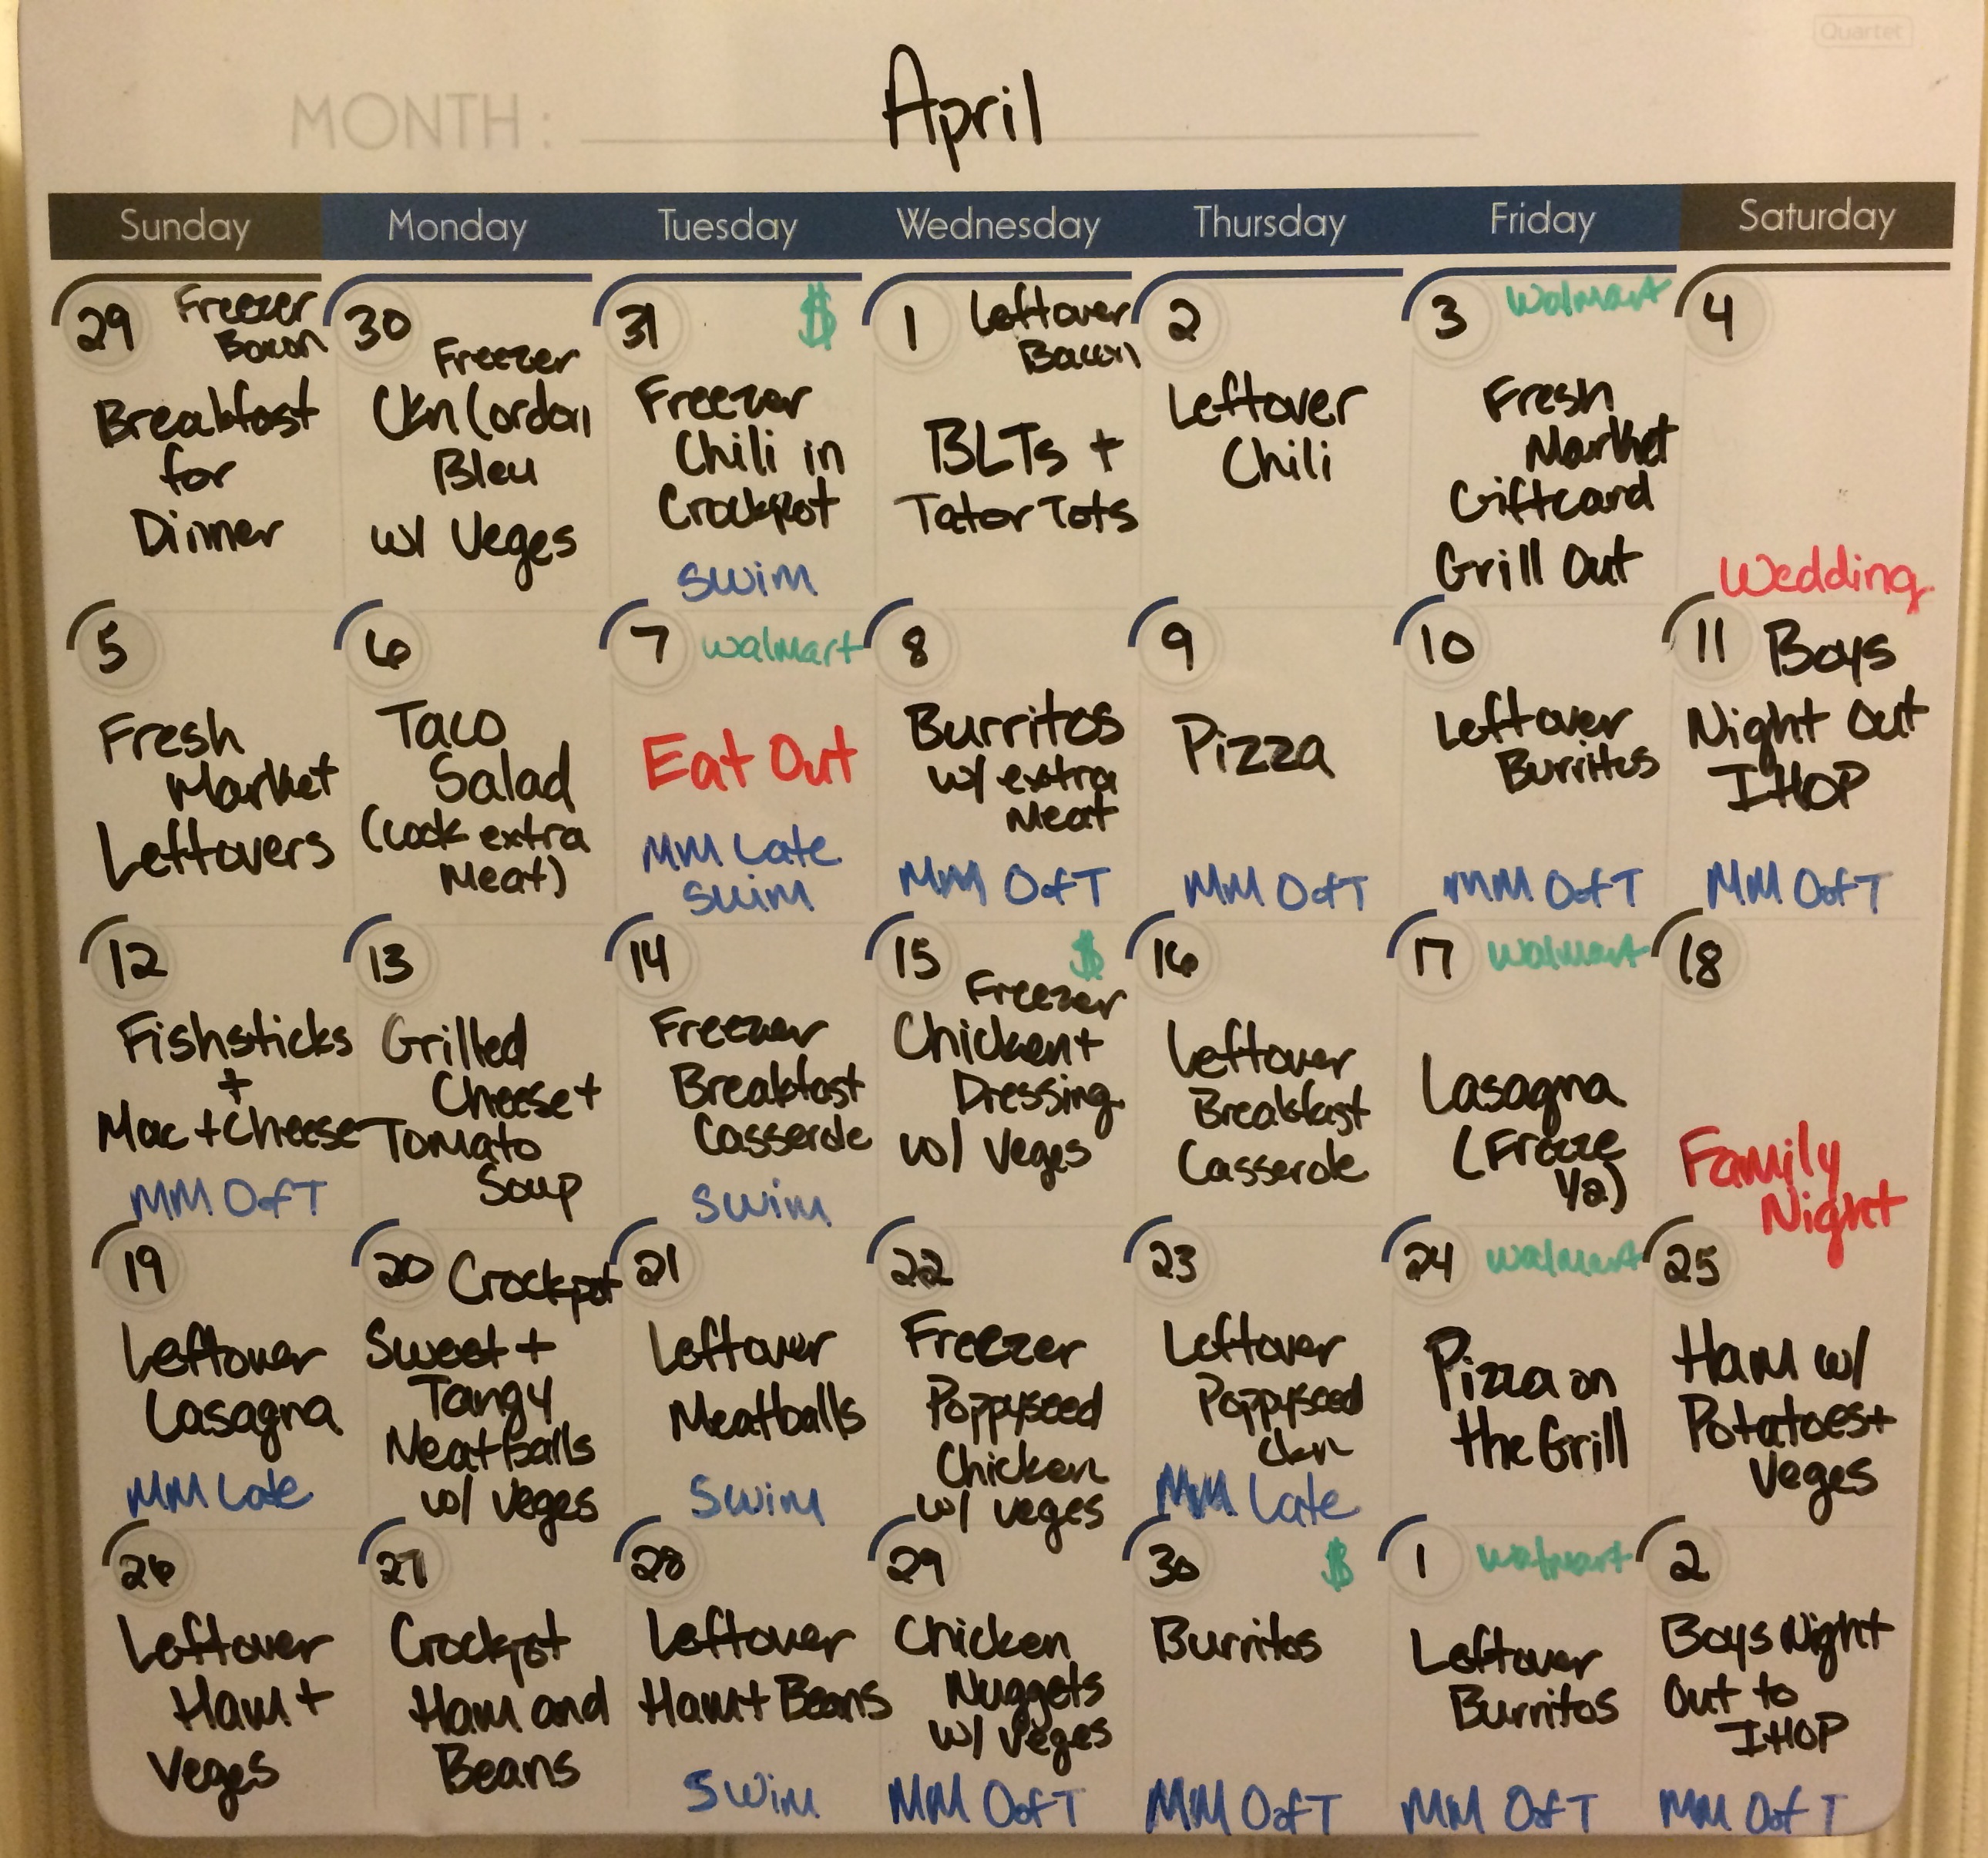 Quartet
MONTH: April
Sunday Monday Tuesday Wednesday Thursday Friday Saturday
29 Freezer
Bacon
Breakfast
for
Dinner
30
Freezer
Ckn Cordon
Bleu
w/ Veges
31 $
Freezer
Chili in
Crockpot
Swim
1 Leftover
Bacon
BLTs +
Tator Tots
2
Leftover
Chili
3 Walmart
Fresh
Market
Giftcard
Grill Out
4
Wedding
5
Fresh
Market
Leftovers
6
Taco
Salad
(Cook extra
Meat)
7 Walmart
Eat Out
MM Late
Swim
8
Burritos
w/ extra
Meat
MM OofT
9
Pizza
MM OofT
10
Leftover
Burritos
MM OofT
11 Boys
Night Out
IHOP
MM OofT
12
Fishsticks
+
Mac + Cheese
MM OofT
13
Grilled
Cheese +
Tomato
Soup
14
Freezer
Breakfast
Casserole
Swim
15 $
Freezer
Chicken +
Dressing
w/ Veges
16
Leftover
Breakfast
Casserole
17 Walmart
Lasagna
(Freeze
1/2)
18
Family
Night
19
Leftover
Lasagna
MM Late
20 Crockpot
Sweet +
Tangy
Meatballs
w/ Veges
21
Leftover
Meatballs
Swim
22
Freezer
Poppyseed
Chicken
w/ veges
23
Leftover
Poppyseed
Ckn
MM Late
24 Walmart
Pizza on
the Grill
25
Ham w/
Potatoes +
Veges
26
Leftover
Ham +
Veges
27
Crockpot
Ham and
Beans
28
Leftover
Ham + Beans
Swim
29
Chicken
Nuggets
w/ Veges
MM OofT
30 $
Burritos
MM OofT
1 Walmart
Leftover
Burritos
MM OofT
2
Boys Night
Out to
IHOP
MM OofT